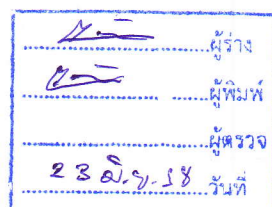 ผู้ร่าง
ผู้พิมพ์
ผู้ตรวจ
23 มิ.ย. 58 วันที่